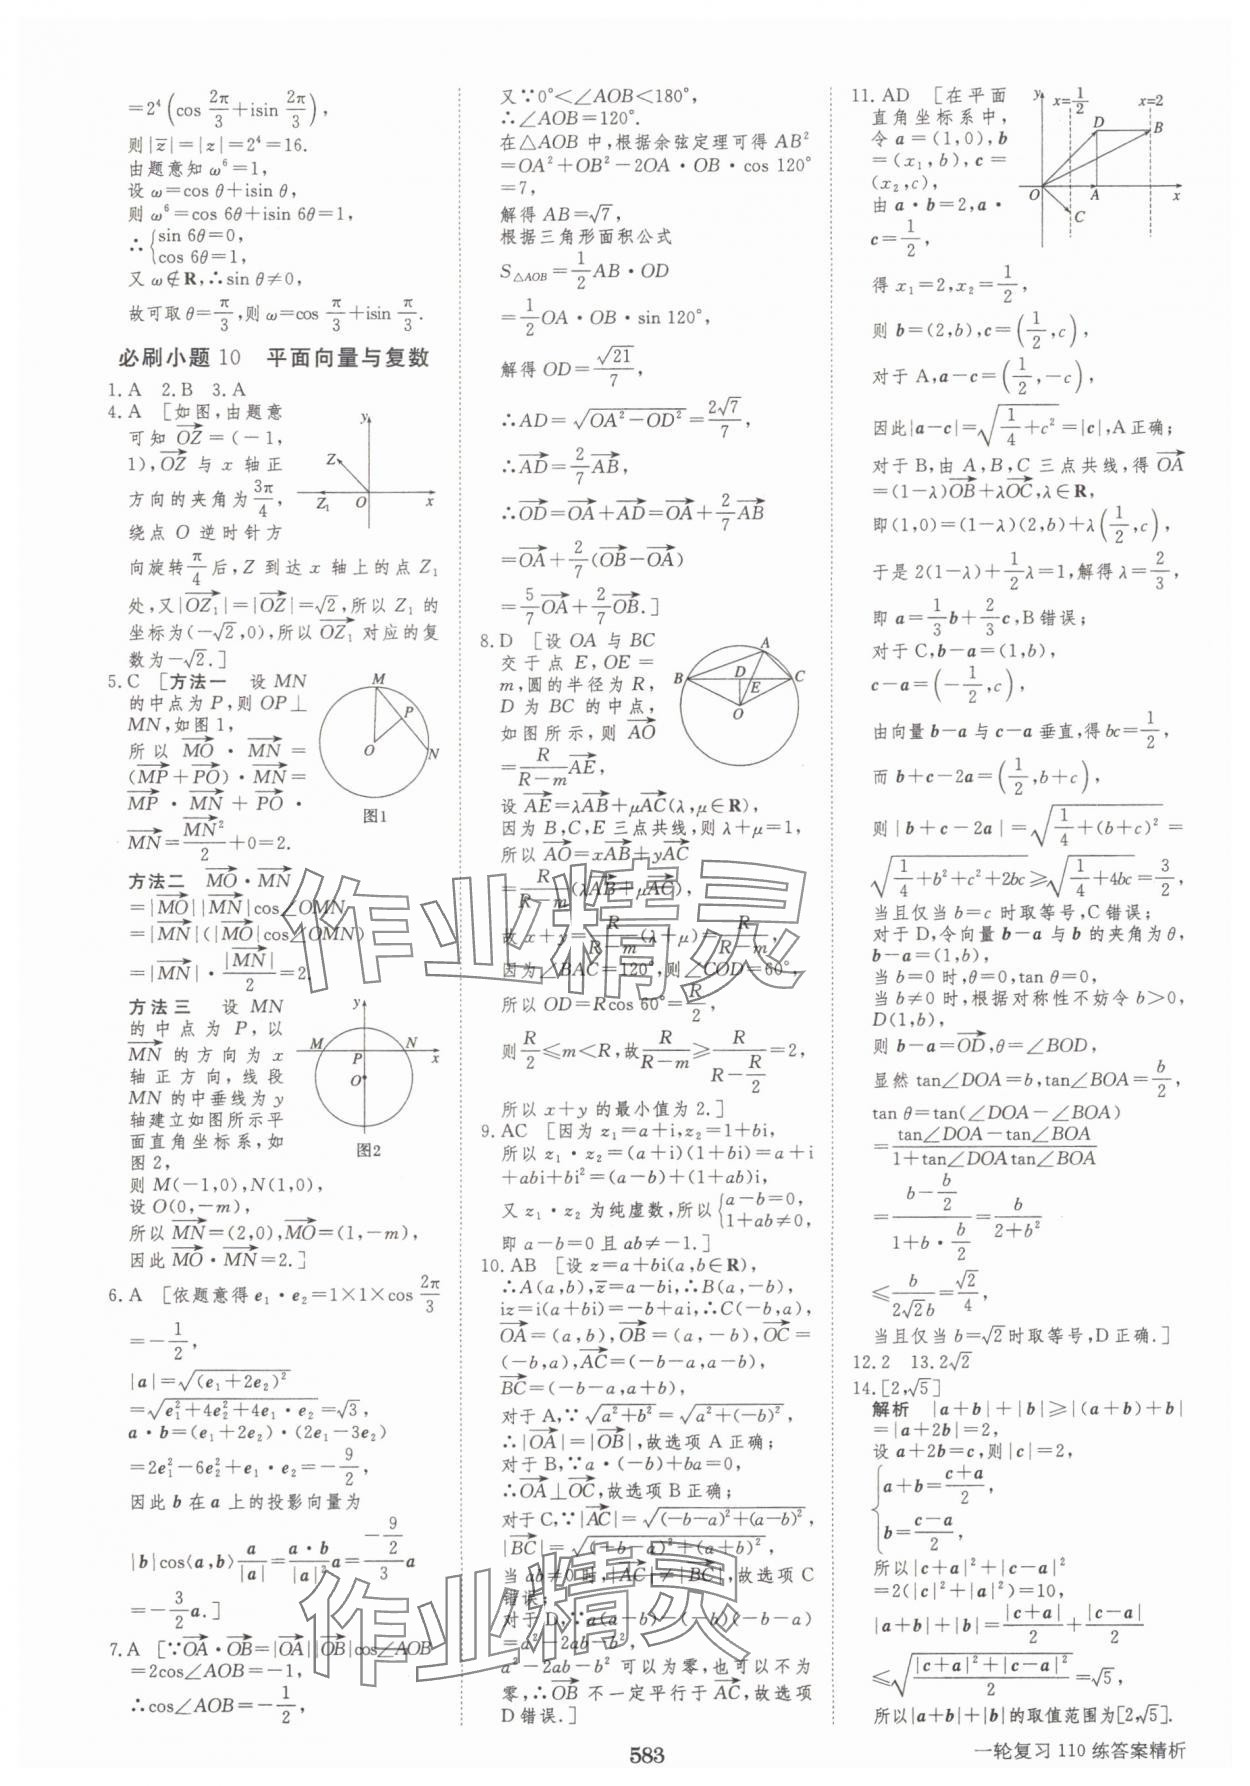 =2⁴(cos 2π/3+isin 2π/3),
则|z̅|=|z|=2⁴=16.
由题意知 ω⁶=1,
设 ω=cos θ+isin θ,
则 ω⁶=cos 6θ+isin 6θ=1,
∴{sin 6θ=0,
cos 6θ=1,
又 ω∉R,∴sin θ≠0,
故可取 θ=π/3,则 ω=cos π/3+isin π/3.
必刷小题 10 平面向量与复数
1. A 2. B 3. A
4. A [如图,由题意
可知 OZ→=(-1,
1),OZ→ 与 x 轴正
方向的夹角为 3π/4,
绕点 O 逆时针方
向旋转 π/4 后,Z 到达 x 轴上的点 Z₁
处,又|OZ₁→|=|OZ→|=√2,所以 Z₁ 的
坐标为(-√2,0),所以 OZ₁→ 对应的复
数为-√2.]
y
Z
Z₁ O x
5. C [方法一 设 MN
的中点为 P,则 OP⊥
MN,如图 1,
所以 MO→·MN→=
(MP→+PO→)·MN→=
MP→·MN→+PO→·
MN→=MN→²/2+0=2.
M
P
O
N
图1
方法二 MO→·MN→
=|MO→||MN→|cos∠OMN
=|MN→|(|MO→|cos∠OMN)
=|MN→|·|MN→|/2=2.
方法三 设 MN
的中点为 P,以
MN→ 的方向为 x
轴正方向,线段
MN 的中垂线为 y
轴建立如图所示平
面直角坐标系,如
图 2,
则 M(-1,0),N(1,0),
设 O(0,-m),
所以 MN→=(2,0),MO→=(1,-m),
因此 MO→·MN→=2.]
y
M N
P x
O
图2
6. A [依题意得 e₁·e₂=1×1×cos 2π/3
=-1/2,
|a|=√((e₁+2e₂)²)
=√(e₁²+4e₂²+4e₁·e₂)=√3,
a·b=(e₁+2e₂)·(2e₁-3e₂)
=2e₁²-6e₂²+e₁·e₂=-9/2,
因此 b 在 a 上的投影向量为
|b|cos⟨a,b⟩a/|a|=(a·b/|a|²)a=((-9/2)/3)a
=-3/2 a.]
7. A [∵OA→·OB→=|OA→||OB→|cos∠AOB
=2cos∠AOB=-1,
∴cos∠AOB=-1/2,
又∵0°<∠AOB<180°,
∴∠AOB=120°.
在△AOB 中,根据余弦定理可得 AB²
=OA²+OB²-2OA·OB·cos 120°
=7,
解得 AB=√7,
根据三角形面积公式
S△AOB=1/2 AB·OD
=1/2 OA·OB·sin 120°,
解得 OD=√21/7,
∴AD=√(OA²-OD²)=2√7/7,
∴AD→=2/7 AB→,
∴OD→=OA→+AD→=OA→+2/7 AB→
=OA→+2/7(OB→-OA→)
=5/7 OA→+2/7 OB→.]
8. D [设 OA 与 BC
交于点 E,OE=
m,圆的半径为 R,
D 为 BC 的中点,
如图所示,则 AO→
=R/(R-m) AE→,
A
B D C
E
O
设 AE→=λAB→+μAC→(λ,μ∈R),
因为 B,C,E 三点共线,则 λ+μ=1,
所以 AO→=xAB→+yAC→
=R/(R-m)(λAB→+μAC→),
故 x+y=R/(R-m)(λ+μ)=R/(R-m),
因为∠BAC=120°,则∠COD=60°,
所以 OD=Rcos 60°=R/2,
则 R/2≤m<R,故 R/(R-m)≥R/(R-R/2)=2,
所以 x+y 的最小值为 2.]
9. AC [因为 z₁=a+i,z₂=1+bi,
所以 z₁·z₂=(a+i)(1+bi)=a+i
+abi+bi²=(a-b)+(1+ab)i,
又 z₁·z₂ 为纯虚数,所以{a-b=0,
1+ab≠0,
即 a-b=0 且 ab≠-1.]
10. AB [设 z=a+bi(a,b∈R),
∴A(a,b),z̅=a-bi,∴B(a,-b),
iz=i(a+bi)=-b+ai,∴C(-b,a),
OA→=(a,b),OB→=(a,-b),OC→=
(-b,a),AC→=(-b-a,a-b),
BC→=(-b-a,a+b),
对于 A,∵√(a²+b²)=√(a²+(-b)²),
∴|OA→|=|OB→|,故选项 A 正确;
对于 B,∵a·(-b)+ba=0,
∴OA→⊥OC→,故选项 B 正确;
对于 C,∵|AC→|=√((-b-a)²+(a-b)²),
|BC→|=√((-b-a)²+(a+b)²),
当 ab≠0 时,|AC→|≠|BC→|,故选项 C
错误;
对于 D,∵a(a-b)-(-b)(-b-a)
=a²-2ab-b²,
a²-2ab-b² 可以为零,也可以不为
零,∴OB→ 不一定平行于 AC→,故选项
D 错误.]
11. AD [在平面
直角坐标系中,
令 a=(1,0),b
=(x₁,b),c=
(x₂,c),
由 a·b=2,a·
c=1/2,
y x=1/2 x=2
D B
O A x
C
得 x₁=2,x₂=1/2,
则 b=(2,b),c=(1/2,c),
对于 A,a-c=(1/2,-c),
因此|a-c|=√(1/4+c²)=|c|,A 正确;
对于 B,由 A,B,C 三点共线,得 OA→
=(1-λ)OB→+λOC→,λ∈R,
即(1,0)=(1-λ)(2,b)+λ(1/2,c),
于是 2(1-λ)+1/2 λ=1,解得 λ=2/3,
即 a=1/3 b+2/3 c,B 错误;
对于 C,b-a=(1,b),
c-a=(-1/2,c),
由向量 b-a 与 c-a 垂直,得 bc=1/2,
而 b+c-2a=(1/2,b+c),
则|b+c-2a|=√(1/4+(b+c)²)=
√(1/4+b²+c²+2bc)≥√(1/4+4bc)=3/2,
当且仅当 b=c 时取等号,C 错误;
对于 D,令向量 b-a 与 b 的夹角为 θ,
b-a=(1,b),
当 b=0 时,θ=0,tan θ=0;
当 b≠0 时,根据对称性不妨令 b>0,
D(1,b),
则 b-a=OD→,θ=∠BOD,
显然 tan∠DOA=b,tan∠BOA=b/2,
tan θ=tan(∠DOA-∠BOA)
=(tan∠DOA-tan∠BOA)/(1+tan∠DOAtan∠BOA)
=(b-b/2)/(1+b·b/2)=b/(2+b²)
≤b/(2√2b)=√2/4,
当且仅当 b=√2时取等号,D 正确.]
12. 2 13. 2√2
14. [2,√5]
解析 |a+b|+|b|≥|(a+b)+b|
=|a+2b|=2,
设 a+2b=c,则|c|=2,
{a+b=(c+a)/2,
b=(c-a)/2,
所以|c+a|²+|c-a|²
=2(|c|²+|a|²)=10,
|a+b|+|b|=|c+a|/2+|c-a|/2
≤√((|c+a|²+|c-a|²)/2)=√5,
所以|a+b|+|b|的取值范围为[2,√5].
作业精灵
作业精灵
583
一轮复习 110 练答案精析